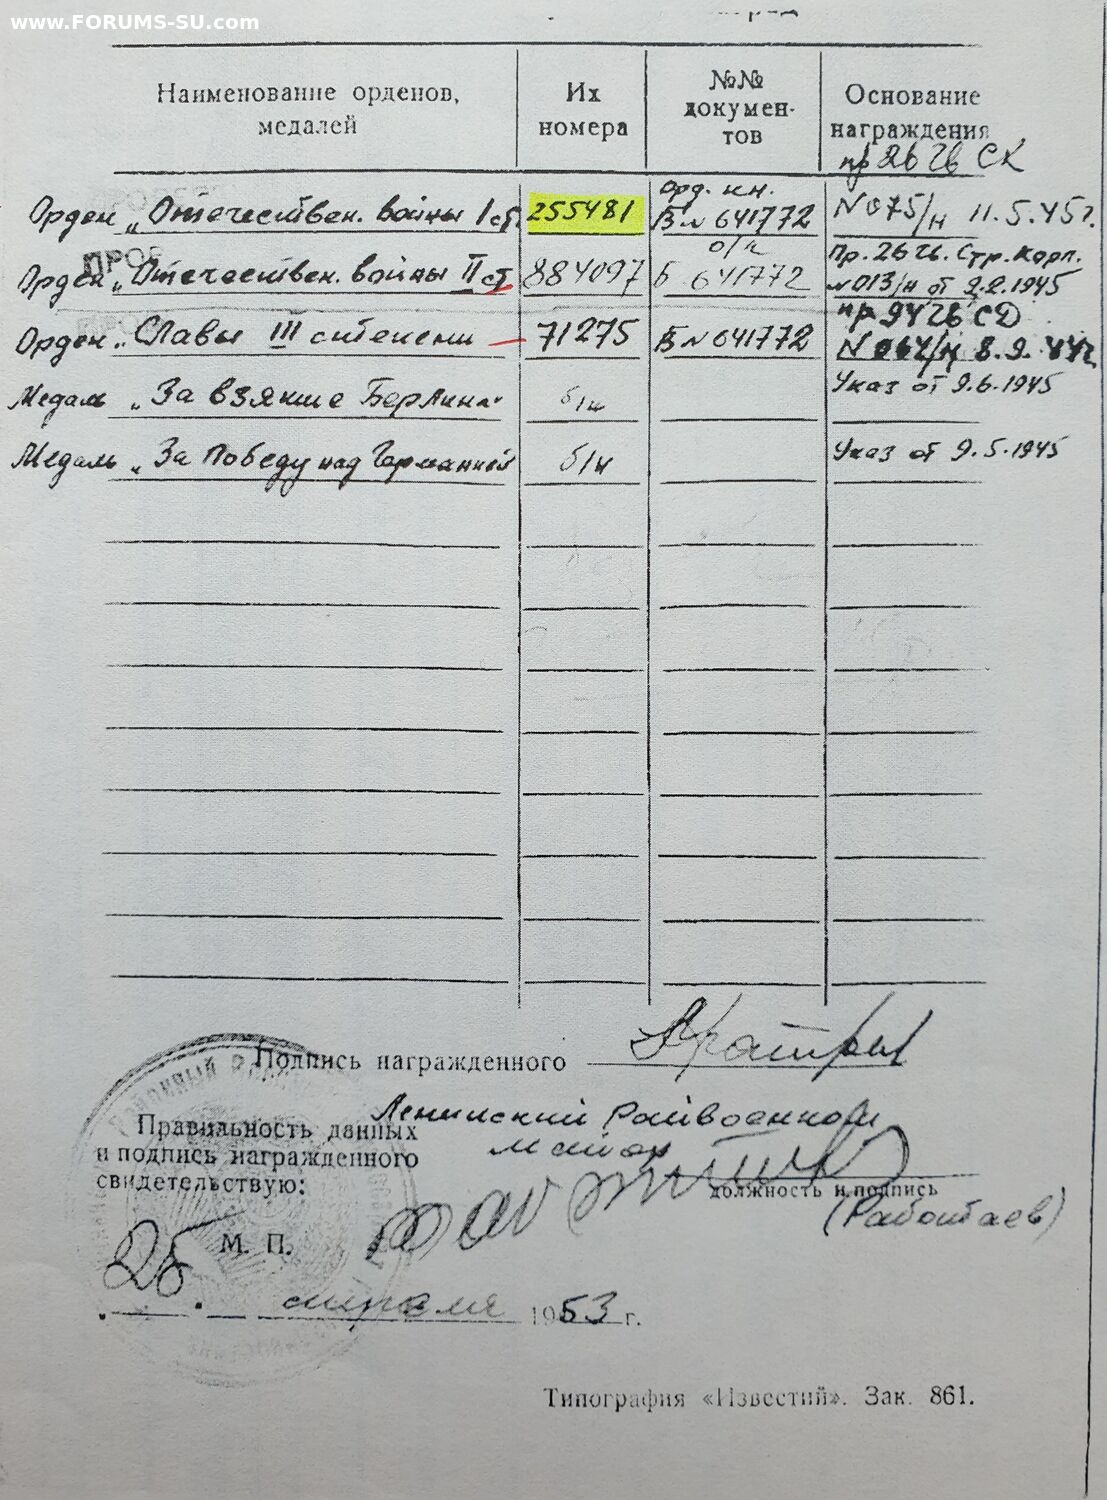 www.FORUMS-SU.com
Наименование орденов, медалей
Их номера
№№ докумен-тов
Основание награждения
пр 26 гв СК
Орден „Отечествен. войны I ст. 255481 Орд. кн. Б№ 641772 N 075/н 11.5.45г.
ПРОВ
Орден „Отечествен. войны II ст 884097 о/к Б 641772 Пр. 26 гв. Стр. Корп. №013/н от 2.2.1945
Орден „Славы III степени 71275 Б№641772 пр 94 гв СД N 064/н 8.9.44г
Медаль „За взятие Берлина" б/н Указ от 9.6.1945
Медаль „За Победу над Германией б/н Указ от 9.5.1945
Подпись награжденного
Правильность данных
и подпись награжденного
свидетельствую:
Ленинский Райвоенком
майор
должность и подпись
(Работаев)
М. П.
25 апреля 1953 г.
Типография «Известий». Зак. 861.